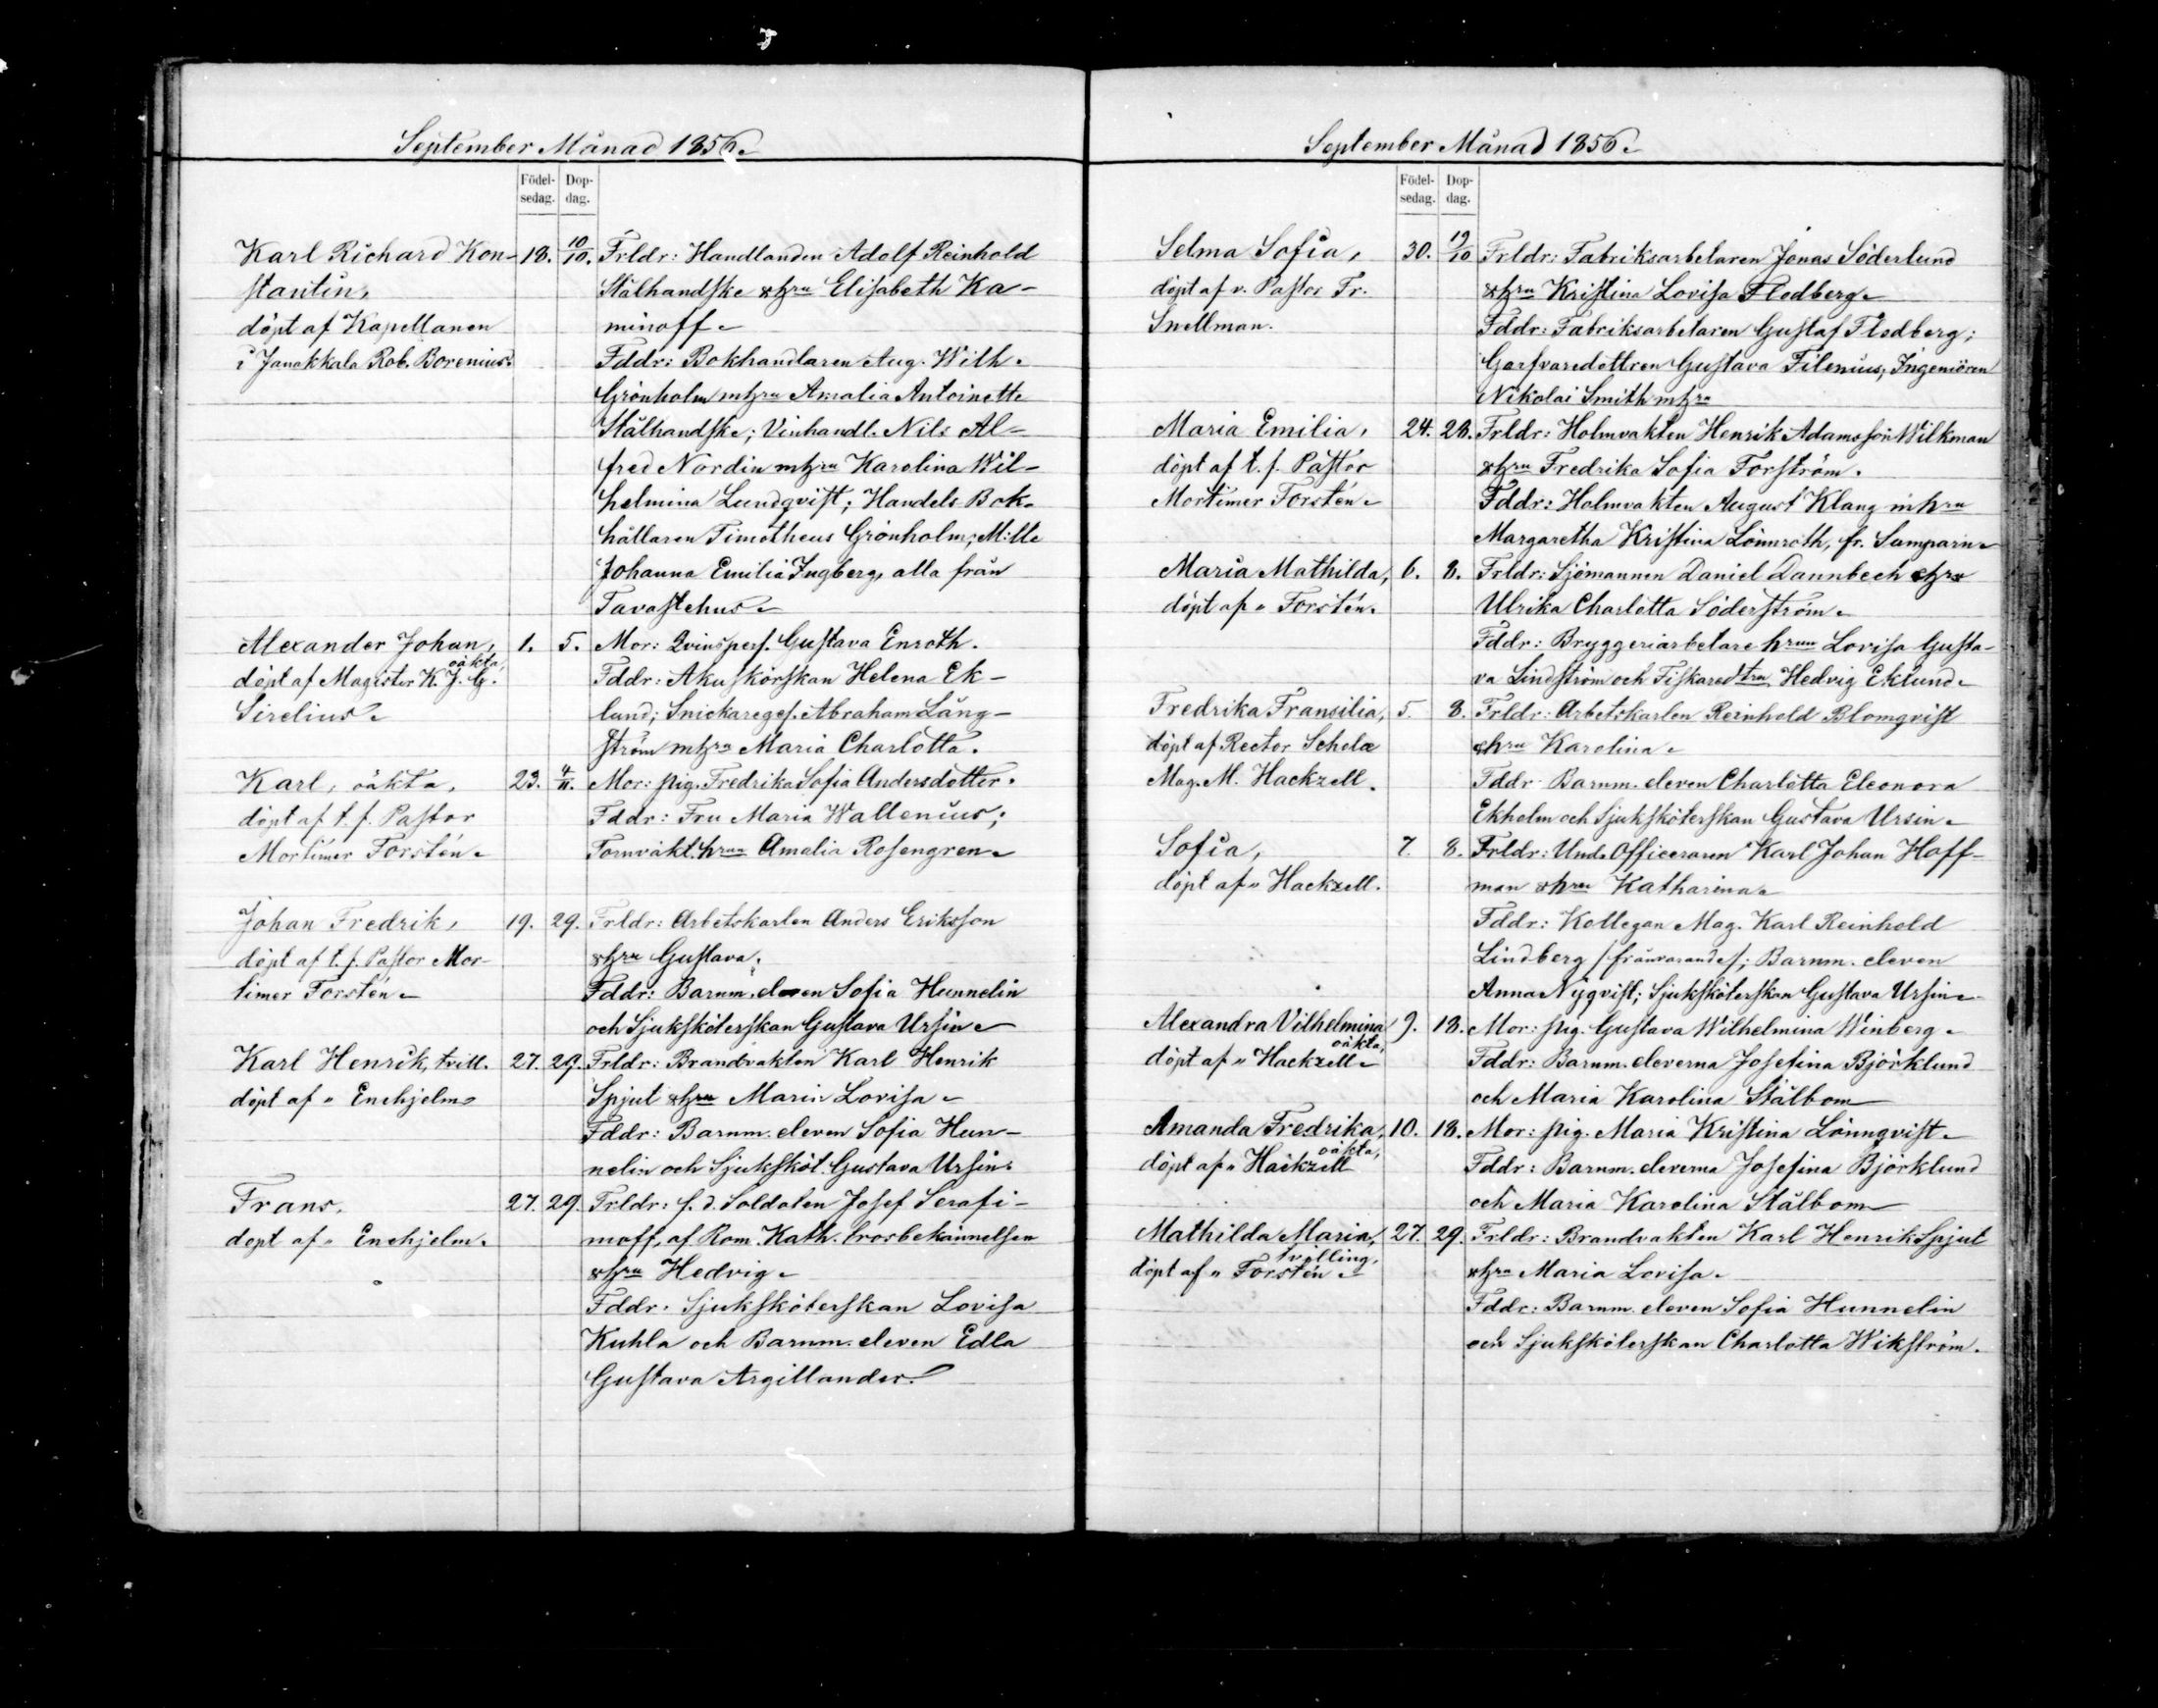 September Månad 1856.
Födel-
sedag.
Dop-
dag.
Karl Richard Kon- 18. 10/10. Frldr: Handlanden Adolf Reinhold
stantin, Stålhandske &hru Elisabeth Ka-
döpt af Kapellanen minoff.
i Janakkala Rob. Borenius. Fddr: Bokhandlaren Aug. Wilh.
Grönholm mhru Amalia Antoinette
Stålhandske; Vinhandl. Nils Al-
fred Nordin mhru Karolina Wil-
helmina Lundqvist; Handels-Bok-
hållaren Timotheus Grönholm; M:lle
Johanna Emilia Ingberg, alla från
Tavastehus.
Alexander Johan, 1. 5. Mor: Qvinspers. Gustava Enroth.
oäkta,
döpt af Magister K. J. G. Fddr: Akuskörskan Helena Ek-
Sirelius. lund; Snickareges. Abraham Lång-
ström mhru Maria Charlotta.
Karl, oäkta, 23. 4/11. Mor: pig. Fredrika Sofia Andersdotter.
döpt af t. f. Pastor Fddr: Fru Maria Wallenius;
Mortimer Forstén. Tornväkt.hrun Amalia Rosengren.
Johan Fredrik, 19. 29. Frldr: Arbetskarlen Anders Eriksson
döpt af t. f. Pastor Mor- &hru Gustava.
timer Forstén. Fddr: Barnm. eleven Sofia Hunnelin
och Sjuksköterskan Gustava Ursin.
Karl Henrik, tvill. 27. 29. Frldr: Brandvakten Karl Henrik
döpt af " Enehjelm. Spjut &hru Maria Lovisa.
Fddr: Barnm. eleven Sofia Hun-
nelin och Sjuksköt. Gustava Ursin.
Frans, 27. 29. Frldr: f. d. Soldaten Josef Serafi-
döpt af " Enehjelm. moff, af Rom. Kath. trosbekännelsen
&hru Hedvig.
Fddr: Sjuksköterskan Lovisa
Kuhla och Barnm. eleven Edla
Gustava Argillander.
September Månad 1856.
Födel-
sedag.
Dop-
dag.
Selma Sofia, 30. 19/10 Frldr: Fabriksarbetaren Jonas Söderlund
döpt af v. Pastor Fr. &hru Kristina Lovisa Flodberg.
Snellman. Fddr: Fabriksarbetaren Gustaf Flodberg;
Garfvaredottren Gustava Filenius; Ingeniören
Nikolai Smith mhru
Maria Emilia, 24. 28. Frldr: Holmvakten Henrik Adamsson Wilkman
döpt af t. f. Pastor &hru Fredrika Sofia Forström.
Mortimer Forstén. Fddr: Holmvakten August Klang mhru
Margaretha Kristina Lönnroth, fr. Sumparn.
Maria Mathilda, 6. 8. Frldr: Sjömannen Daniel Dannbech &hru
döpt af " Forstén. Ulrika Charlotta Söderström.
Fddr: Bryggeriarbetarehrun Lovisa Gusta-
va Lindström och Fiskaredtrn Hedvig Eklund.
Fredrika Fransilia, 5. 8. Frldr: Arbetskarlen Reinhold Blomqvist
döpt af Rector Scholæ &hru Karolina.
Mag. M. Hackzell. Fddr: Barnm. eleven Charlotta Eleonora
Ekholm och Sjuksköterskan Gustava Ursin.
Sofia, 7. 8. Frldr: Und. Officeraren Karl Johan Hoff-
döpt af " Hackzell. man &hru Katharina.
Fddr: Kollegan Mag. Karl Reinhold
Lindberg /frånvarande/; Barnm. eleven
Anna Nyqvist; Sjuksköterskan Gustava Ursin.
Alexandra Vilhelmina, 9. 18. Mor: pig. Gustava Wilhelmina Winberg.
oäkta,
döpt af " Hackzell. Fddr: Barnm. eleverna Josefina Björklund
och Maria Karolina Stålbom
Amanda Fredrika, 10. 18. Mor: pig. Maria Kristina Lönnqvist.
oäkta,
döpt af " Hackzell Fddr: Barnm. eleverna Josefina Björklund
och Maria Karolina Stålbom
Mathilda Maria, 27. 29. Frldr: Brandvakten Karl Henrik Spjut
tvilling,
döpt af " Forstén. &hru Maria Lovisa.
Fddr: Barnm. eleven Sofia Hunnelin
och Sjuksköterskan Charlotta Wikström.